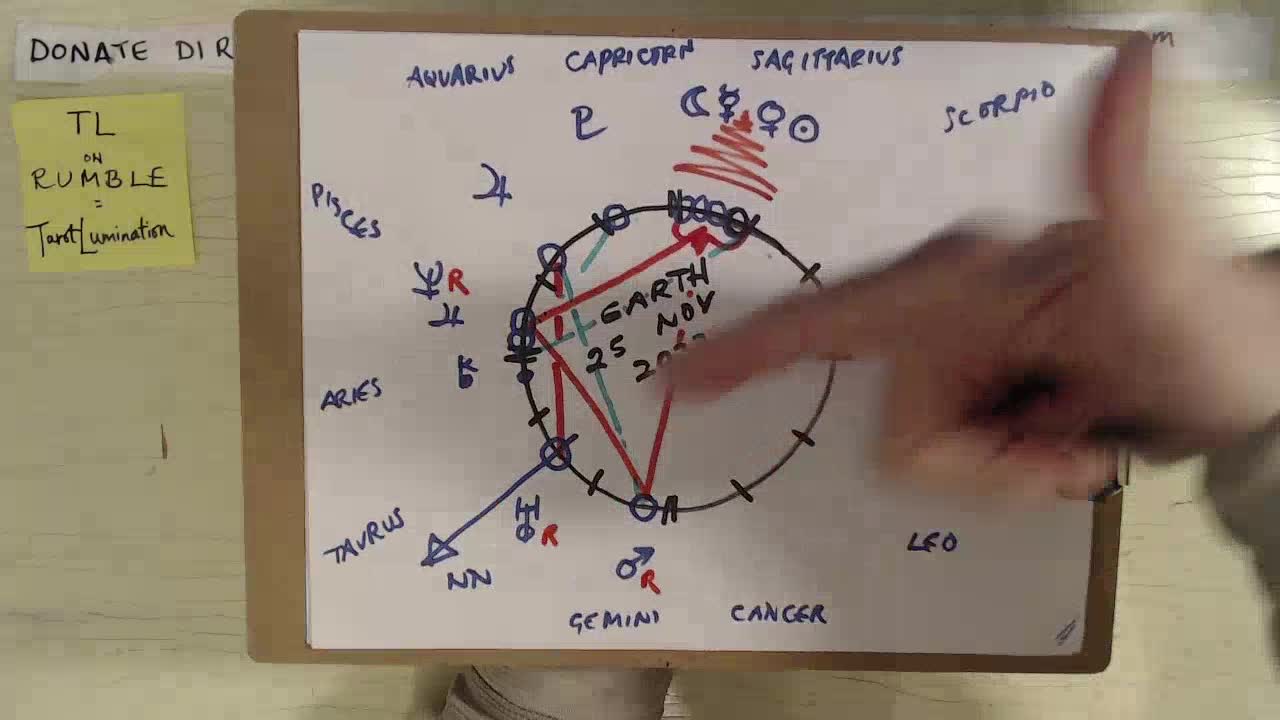 DONATE DIR
m
TL
ON
RUMBLE
=
TarotLumination
AQUARIUS
CAPRICORN
SAGITTARIUS
SCORPIO
PISCES
R
ARIES
EARTH
25 NOV
TAURUS
NN
R
R
GEMINI
CANCER
LEO